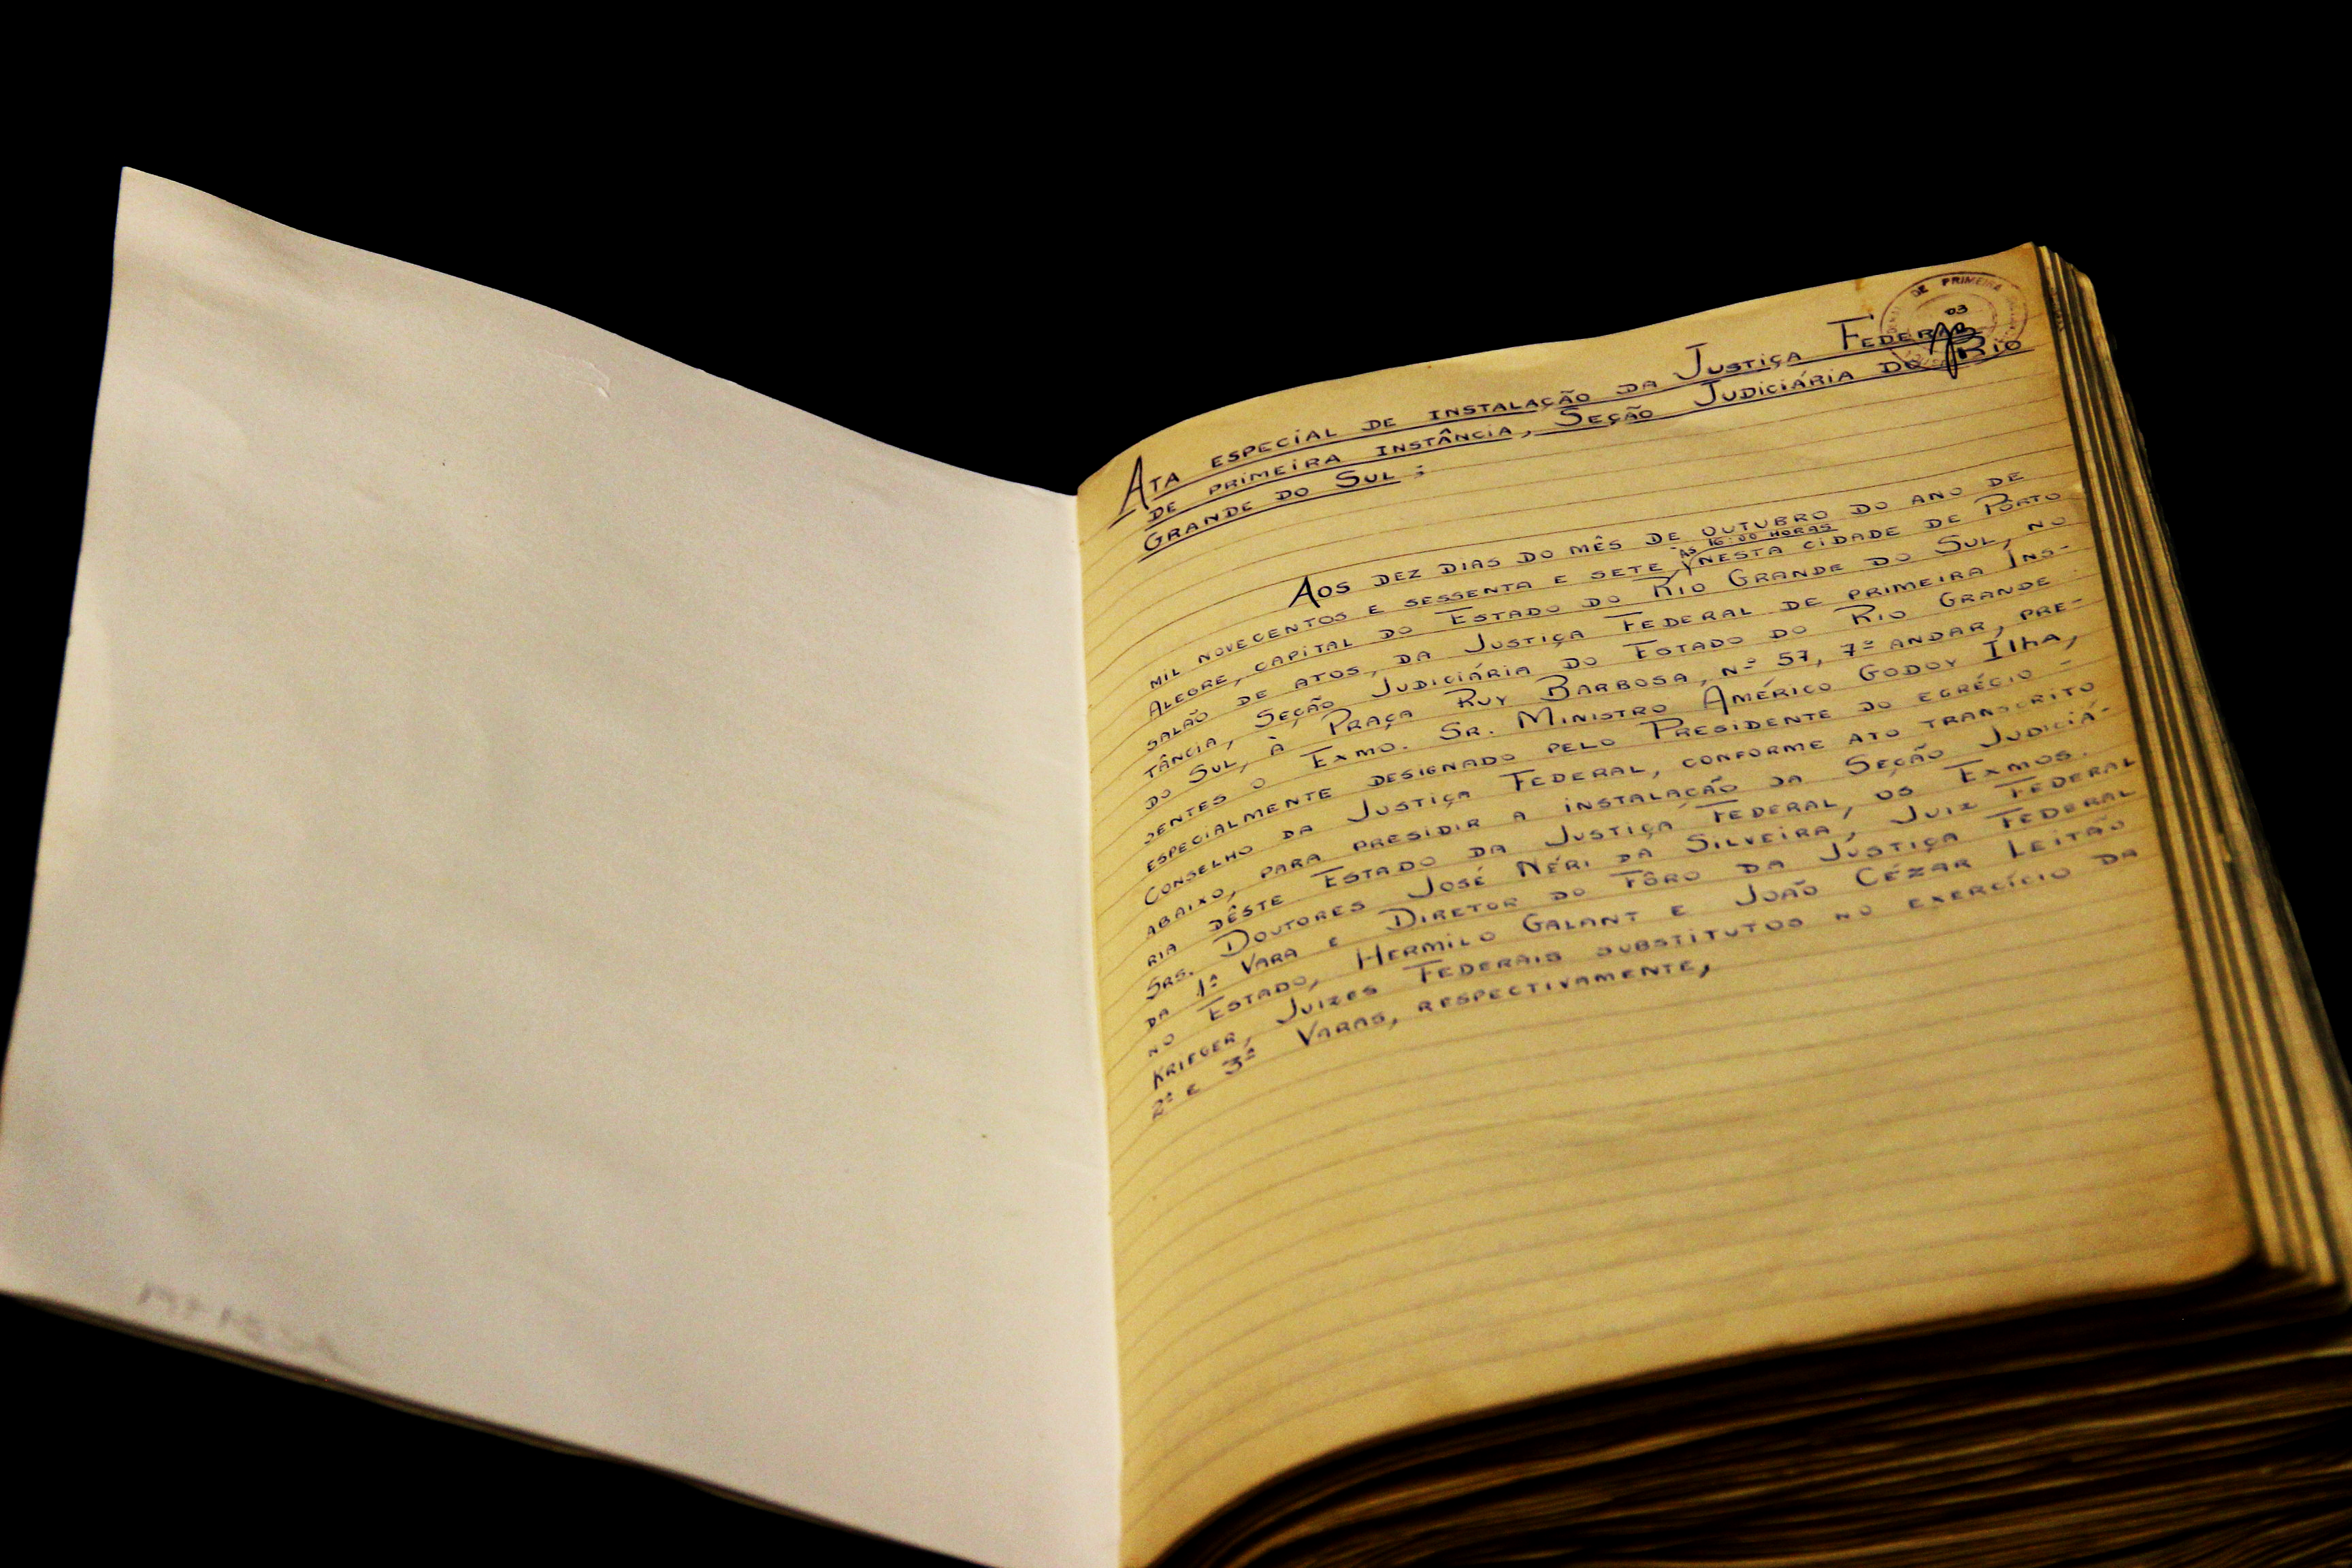 DE PRIMEIRA
03
Ata especial de instalação da Justiça Federal
de primeira instância, Seção Judiciária do Rio
Grande do Sul:
Aos dez dias do mês de outubro do ano de
às 16:00 horas
mil novecentos e sessenta e sete, nesta cidade de Pôrto
Alegre, capital do Estado do Rio Grande do Sul, no
salão de atos, da Justiça Federal de primeira Ins-
tância, Seção Judiciária do Estado do Rio Grande
do Sul, à Praça Ruy Barbosa, nº 57, 7º andar, pre-
sentes o Exmo. Sr. Ministro Américo Godoy Ilha,
especialmente designado pelo Presidente do egrégio -
Conselho da Justiça Federal, conforme ato transcrito
abaixo, para presidir a instalação da Seção Judiciá-
ria dêste Estado da Justiça Federal, os Exmos.
Srs. Doutores José Néri da Silveira, Juiz Federal
da 1ª Vara e Diretor do Fôro da Justiça Federal
no Estado, Hermilo Galant e João Cézar Leitão
Krieger, Juizes Federais substitutos no exercício da
2ª e 3ª Varas, respectivamente,